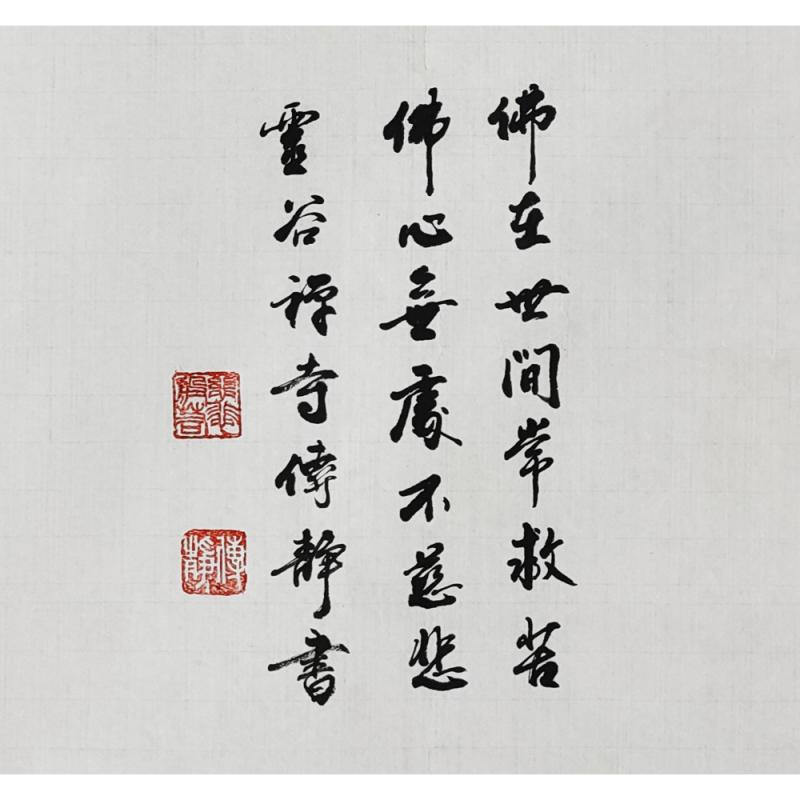 佛在世間常救苦
佛心無處不慈悲
靈谷禪寺傳靜書
傳靜